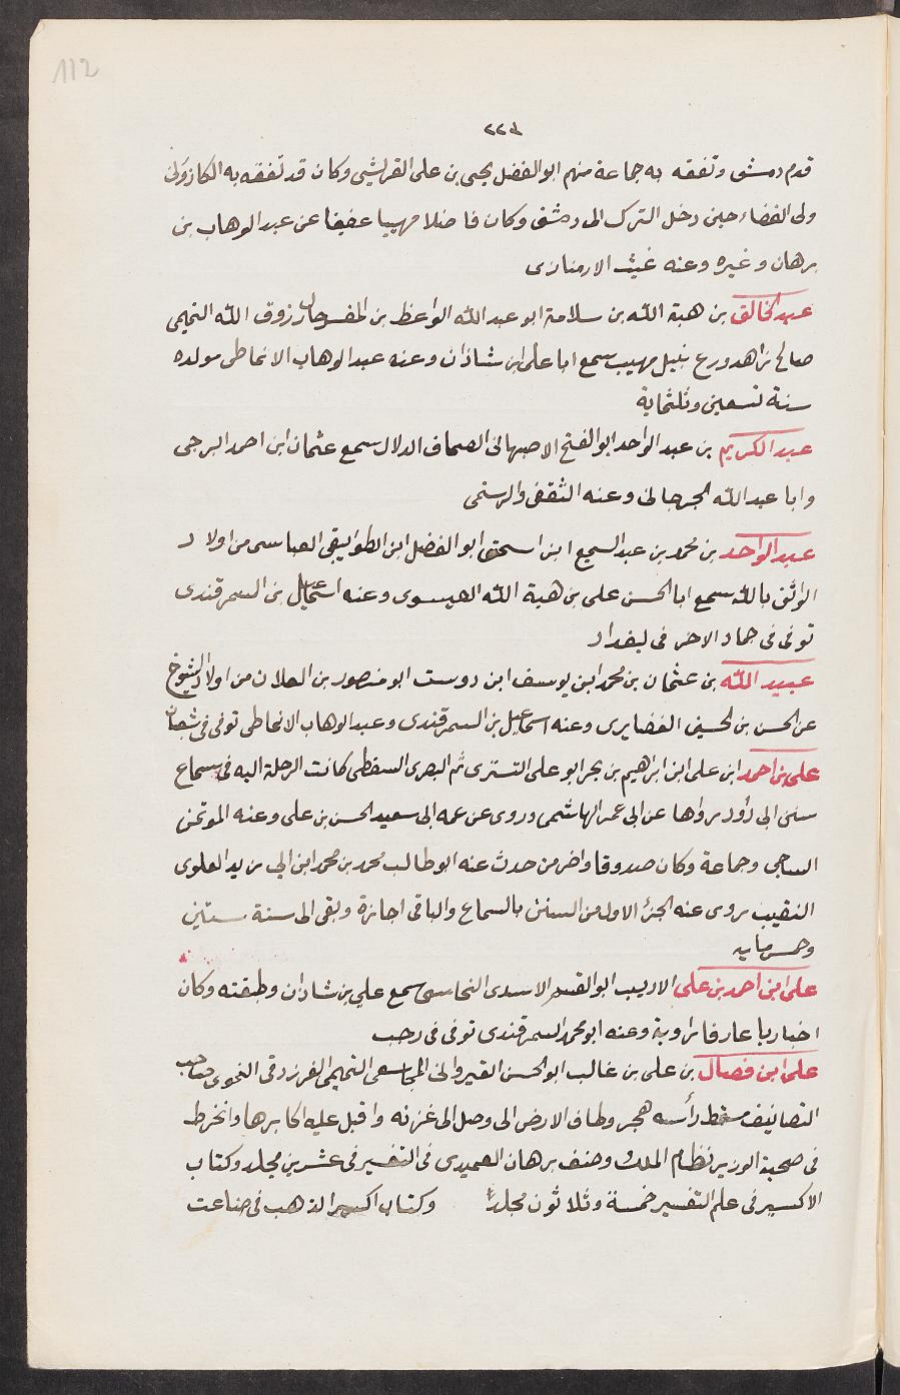 112
٢٢٣
قدم دمشق وتفقه به جماعة منهم ابو الفضل يحيى بن على القرشي وكان قد تفقه به الكازونى
ولى القضاء حين دخل الترك الى دمشق وكان فاضلا مهيبا عفيفا عن عبد الوهاب بن
برهان وغيره وعنه غيث الارمنازى
عبد الخالق بن هبة الله بن سلامة ابو عبد الله الواعظ بن المفسر جار زوق الله التميمى
صالح زاهد ورع نبيل مهيب سمع ابا على ابن شاذان وعنه عبد الوهاب الانماطى مولده
سنة تسعين وثلثماية
عبد الكريم بن عبد الواحد ابو الفتح الاصبهانى الصحاف الدلال سمع عثمان ابن احمد البرجى
وابا عبد الله الجرجانى وعنه الثقفى والرستمى
عبد الواحد بن محمد بن عبد السميع ابن اسحق ابو الفضل ابن الطوابيقى العباسى من اولاد
الواثق بالله سمع ابا الحسن على بن هبة الله العيسوى وعنه اسماعيل بن السمرقندى
توفى فى جماد الاخر فى بغداد
عبيد الله بن عثمان بن محمد ابن يوسف ابن دوست ابو منصور بن العلان من اولاد الشيوخ
عن الحسن بن الحسين الغضايرى وعنه اسماعيل بن السمرقندى وعبد الوهاب الانماطى توفى فى شعبان
على بن احمد ابن على ابن ابراهيم بن بحر ابو على التسترى ثم البصرى السقطى كانت الرحلة اليه فى سماع
سنن ابى داود رواها عن ابى عمر الهاشمى وروى عن عمه ابى سعيد الحسن بن على وعنه الموتمن
الساجى وجماعة وكان صدوقا واخر من حدث عنه ابو طالب محمد بن محمد ابن ابى زيد العلوى
النقيب يروى عنه الجزء الاول من السنن بالسماع والباقى اجازة وبقى الى سنة ستين
وخمسماية
على ابن احمد بن على الاديب ابو القسم الاسدى النجاسى سمع على بن شاذان وطبقته وكان
اخباريا عارفا راوية وعنه ابو محمد السمرقندى توفى فى رجب
على ابن فضال بن على بن غالب ابو الحسن القيروانى المجاشعى التميمى الفرزدقى النحوى صاحب
التصانيف مسقط رأسه هجر وطاف الارض الى وصل الى غزنه واقبل عليه اكابرها وانخرط
فى صحبة الوزير نظام الملك وصنف برهان العميدى فى التفسير فى عشرين مجلد وكتاب
الاكسير فى علم التفسير خمسة وثلاثون مجلدا وكتاب اكسير الذهب فى صناعت